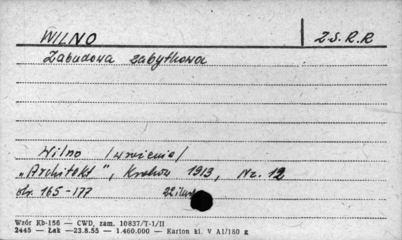 WILNO Z.S.R.R
Zabudowa zabytkowa
Wilno /wrażenia/
„Architekt", Kraków 1913, Nr. 12
str. 165-177 22 ilustr.
Wzór Kb-156 — CWD, zam. 10837/T-1/II
2445 — Łak — 23.8.55 — 1.460.000 — Karton kl. V A1/180 g